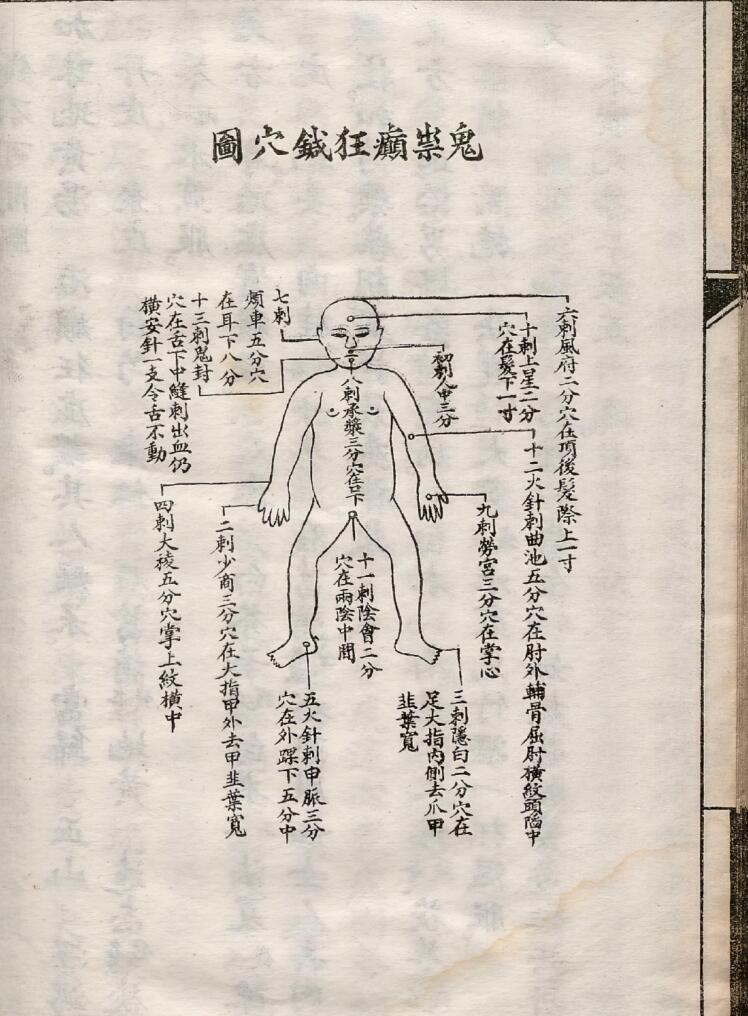 鬼祟癲狂鍼穴圖
六刺風府二分穴在項後髮際上一寸
十刺上星二分
穴在髮下一寸
十二火針刺曲池五分穴在肘外輔骨屈肘橫紋頭陷中
初刺人中三分
九刺勞宮三分穴在掌心
三刺隱白二分穴在
足大指內側去爪甲
韭葉寬
八刺承漿三分穴在口下
十一刺陰會二分
穴在兩陰中間
七刺
頰車五分穴
在耳下八分
十三刺鬼封
穴在舌下中縫刺出血仍
橫安針一支令舌不動
五火針刺申脈三分
穴在外踝下五分中
二刺少商三分穴在大指甲外去甲韭葉寬
四刺大稜五分穴掌上紋橫中